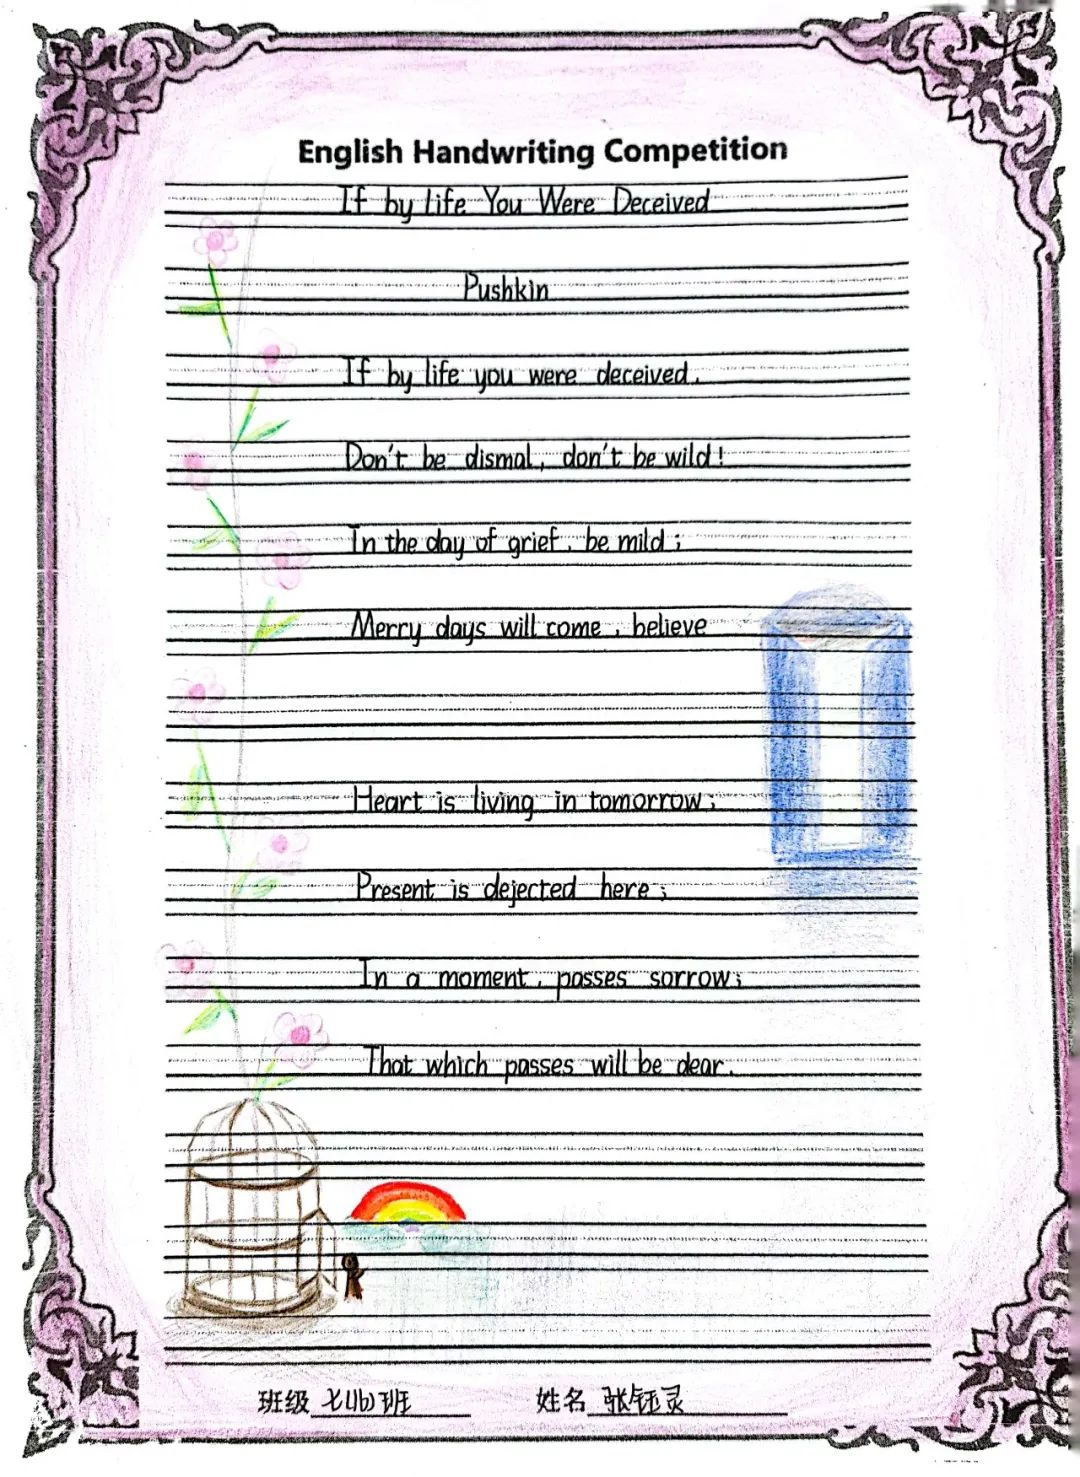 English Handwriting Competition
If by life You Were Deceived
Pushkin
If by life you were deceived.
Don't be dismal, don't be wild!
In the day of grief, be mild;
Merry days will come, believe
Heart is living in tomorrow;
Present is dejected here;
In a moment, passes sorrow;
That which passes will be dear.
班级 班
姓名 张钰灵